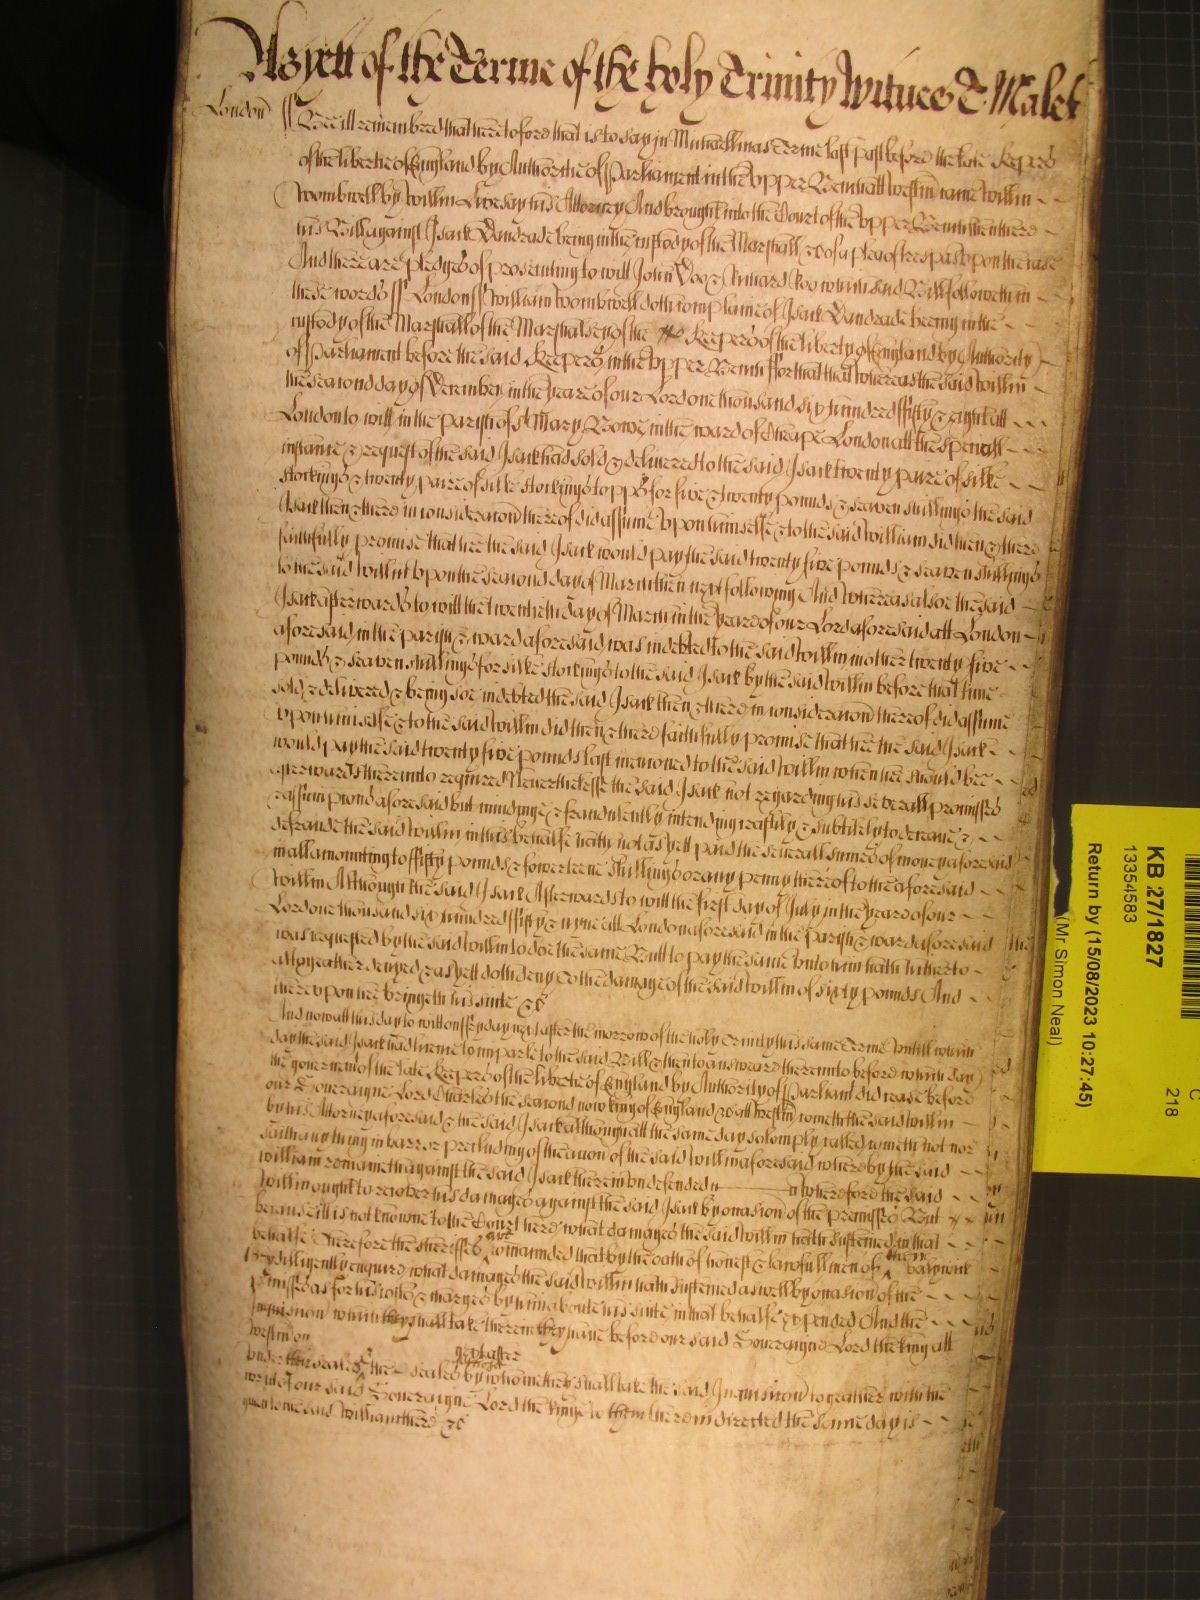 As yett of the Terme of the holy Trinity Witnes T. Malet
London ss Bee itt remembred that heretofore that is to say in Michaellmas Terme last past before the late Keepers
of the libertie of England by Authoritie of Parliament in the Upper Bench att Westmr came Willm
Wombwell by Willm Livesay his Attorney And brought into the Court of the Upper Bench then there
his Bill against Isack Dandrade being in the custody of the Marshall &c of a plea of trespas upon the case
And there are pledges of prosecuting to witt John Doo & Richard Roo which said Bill followeth in
these words ss London ss William Wombwell doth complaine of Isack Dandrade beeing in the
custody of the Marshall of the Marshalsey of the Keepers of the liberty of England by Authority
of Parliament before the said Keepers in the Upper Bench ffor that that whereas the said Willm
the second day of December in the yeare of our Lord one thousand six hundred ffifty & eight att
London to witt in the parish of St Mary Bowe in the ward of Cheape London att the speciall
instance & request of the said Isack had sold & delivered to the said Isack twenty paire of silke
stockings & twenty paire of silke stockings topps for five & twenty pounds & seaven shillings the said
Isack then & there in consideracon thereof did assume upon himselfe & to the said William did then & there
faithfully promise that hee the said Isack would pay the said twenty five pounds & seaven shillings
to the said Willm upon the second day of March then next following And whereas alsoe the said
Isack afterwards to witt the twentieth day of March in the yeare of our Lord aforesaid att London
aforesaid in the parish & ward aforesaid was indebted to the said Willm in other twenty five
pounds & seaven shillings for silke stockings to the said Isack by the said Willm before that time
sold & delivered & being soe indebted the said Isack then & there in consideracon thereof did assume
upon himselfe & to the said Willm did then & there faithfully promise that hee the said Isack
would pay the said twenty five pounds last menconed to the said Willm when hee should bee
afterwards thereunto required Neverthelesse the said Isack not regarding his severall promisses
& assumpcions aforesaid but mindinge & fraudulently intending craftily & subtilely to deceave &
defraude the said Willm in this behalfe hath not as yett paid the severall summes of money aforesaid
in all amounting to ffifty pounds & fowerteene shillings or any penny thereof to the aforesaid
Willm Although the said Isack Afterwards to witt the first day of July in the yeare of our
Lord one thousand six hundred ffifty & nyne att London aforesaid in the parish & ward aforesaid
was requested by the said Willm to doe the same Butt to pay the same unto him hath hitherto
altogeather denyed & as yett doth deny To the damage of the said Willm of sixty pounds And
thereupon hee bringeth his suite &c
And now att this day to witt on ffryday next after the morrow of the holy Trinity this same Terme Untill which
day the said Isack had licence to imparle to the said Bill & then to answeare thereunto before which day
the goverment of the late Keepers of the libertie of England by Authority of Parliamt did cease before
our Soveraigne Lord Charles the second now king of England &c att Westmr cometh the said Willm
by his Attorney aforesaid & the said Isack although att the same day solemply called cometh not nor
saith any thing in barr or precluding of the accion of the said Willm aforesaid whereby the said
William remaineth against the said Isack therein undefended Wherefore the said
Willm ought to recover his damages against the said Isack by occasion of the premisses But
because itt is not knowne to the Court here what damages the said Willm hath susteined in that
behalfe Therefore the sheriffes are comanded that by the oath of honest & lawfull men of their baylywick
they diligently enquire what damages the said Willm hath susteined aswell by occasion of the
premisses as for his costs & charges by him aboute his suite in that behalfe expended And the
Inquisicion which they shall take therein they have before our said Soveraigne Lord the king att
Westmr on next after
under their seales & the seales of those by whome they shall take the said Inquisicion togeather with the
writt of our said Soveraigne Lord the kinge to them therein directed the same day is
given to the said William there &c
KB 27/1827
13354583
Return by (15/08/2023 10:27:45)
(Mr Simon Neal)
218